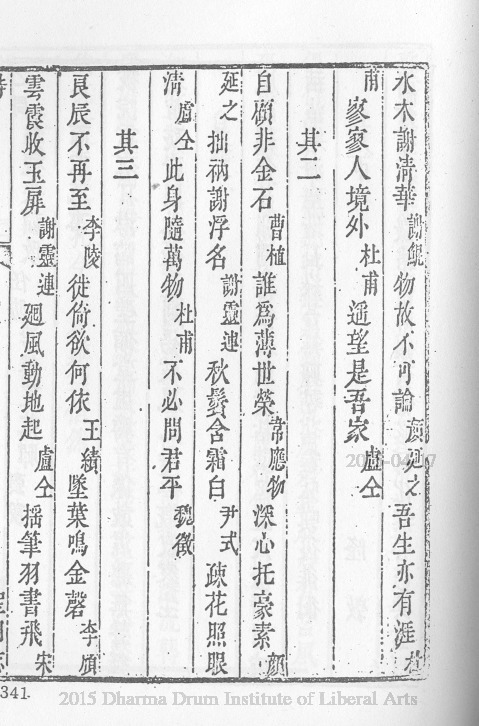 水木謝清華謝鯤物故不可論顏延之吾生亦有涯杜
甫寥寥人境外杜甫遥望是吾家盧仝
其二
自顧非金石曹植誰為薄世榮韋應物深心托豪素顏
延之拙衲謝浮名謝靈運秋鬢含霜白尹式疎花照眼
清盧仝此身隨萬物杜甫不必問君平魏徵
其三
良辰不再至李陵徙倚欲何依王績墜葉鳴金磬李頎
雲霞收玉屏謝靈運廻風動地起盧仝揺筆羽書飛宋
341
2015 Dharma Drum Institute of Liberal Arts